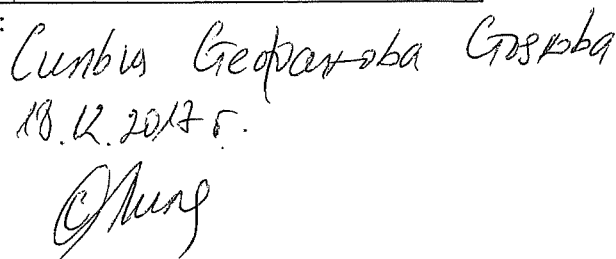 :
Силвия Стефанова Стоянова
18.12.2017 г.